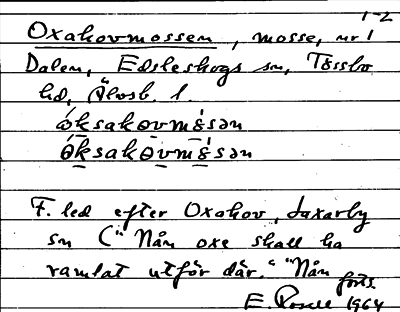 1-2
Oxahovmossen, mosse, nr 1
Dalen, Edsleskogs sn, Tössbo
hd, Älvsb. l.
ò̀ksakovmǫ̀sən
ò̀ksakovmǫ̀sən
F. led efter Oxahov, Laxarby
sn ("Nån oxe skall ha
ramlat utför där." "Nån
forts
E. Rosell 1964